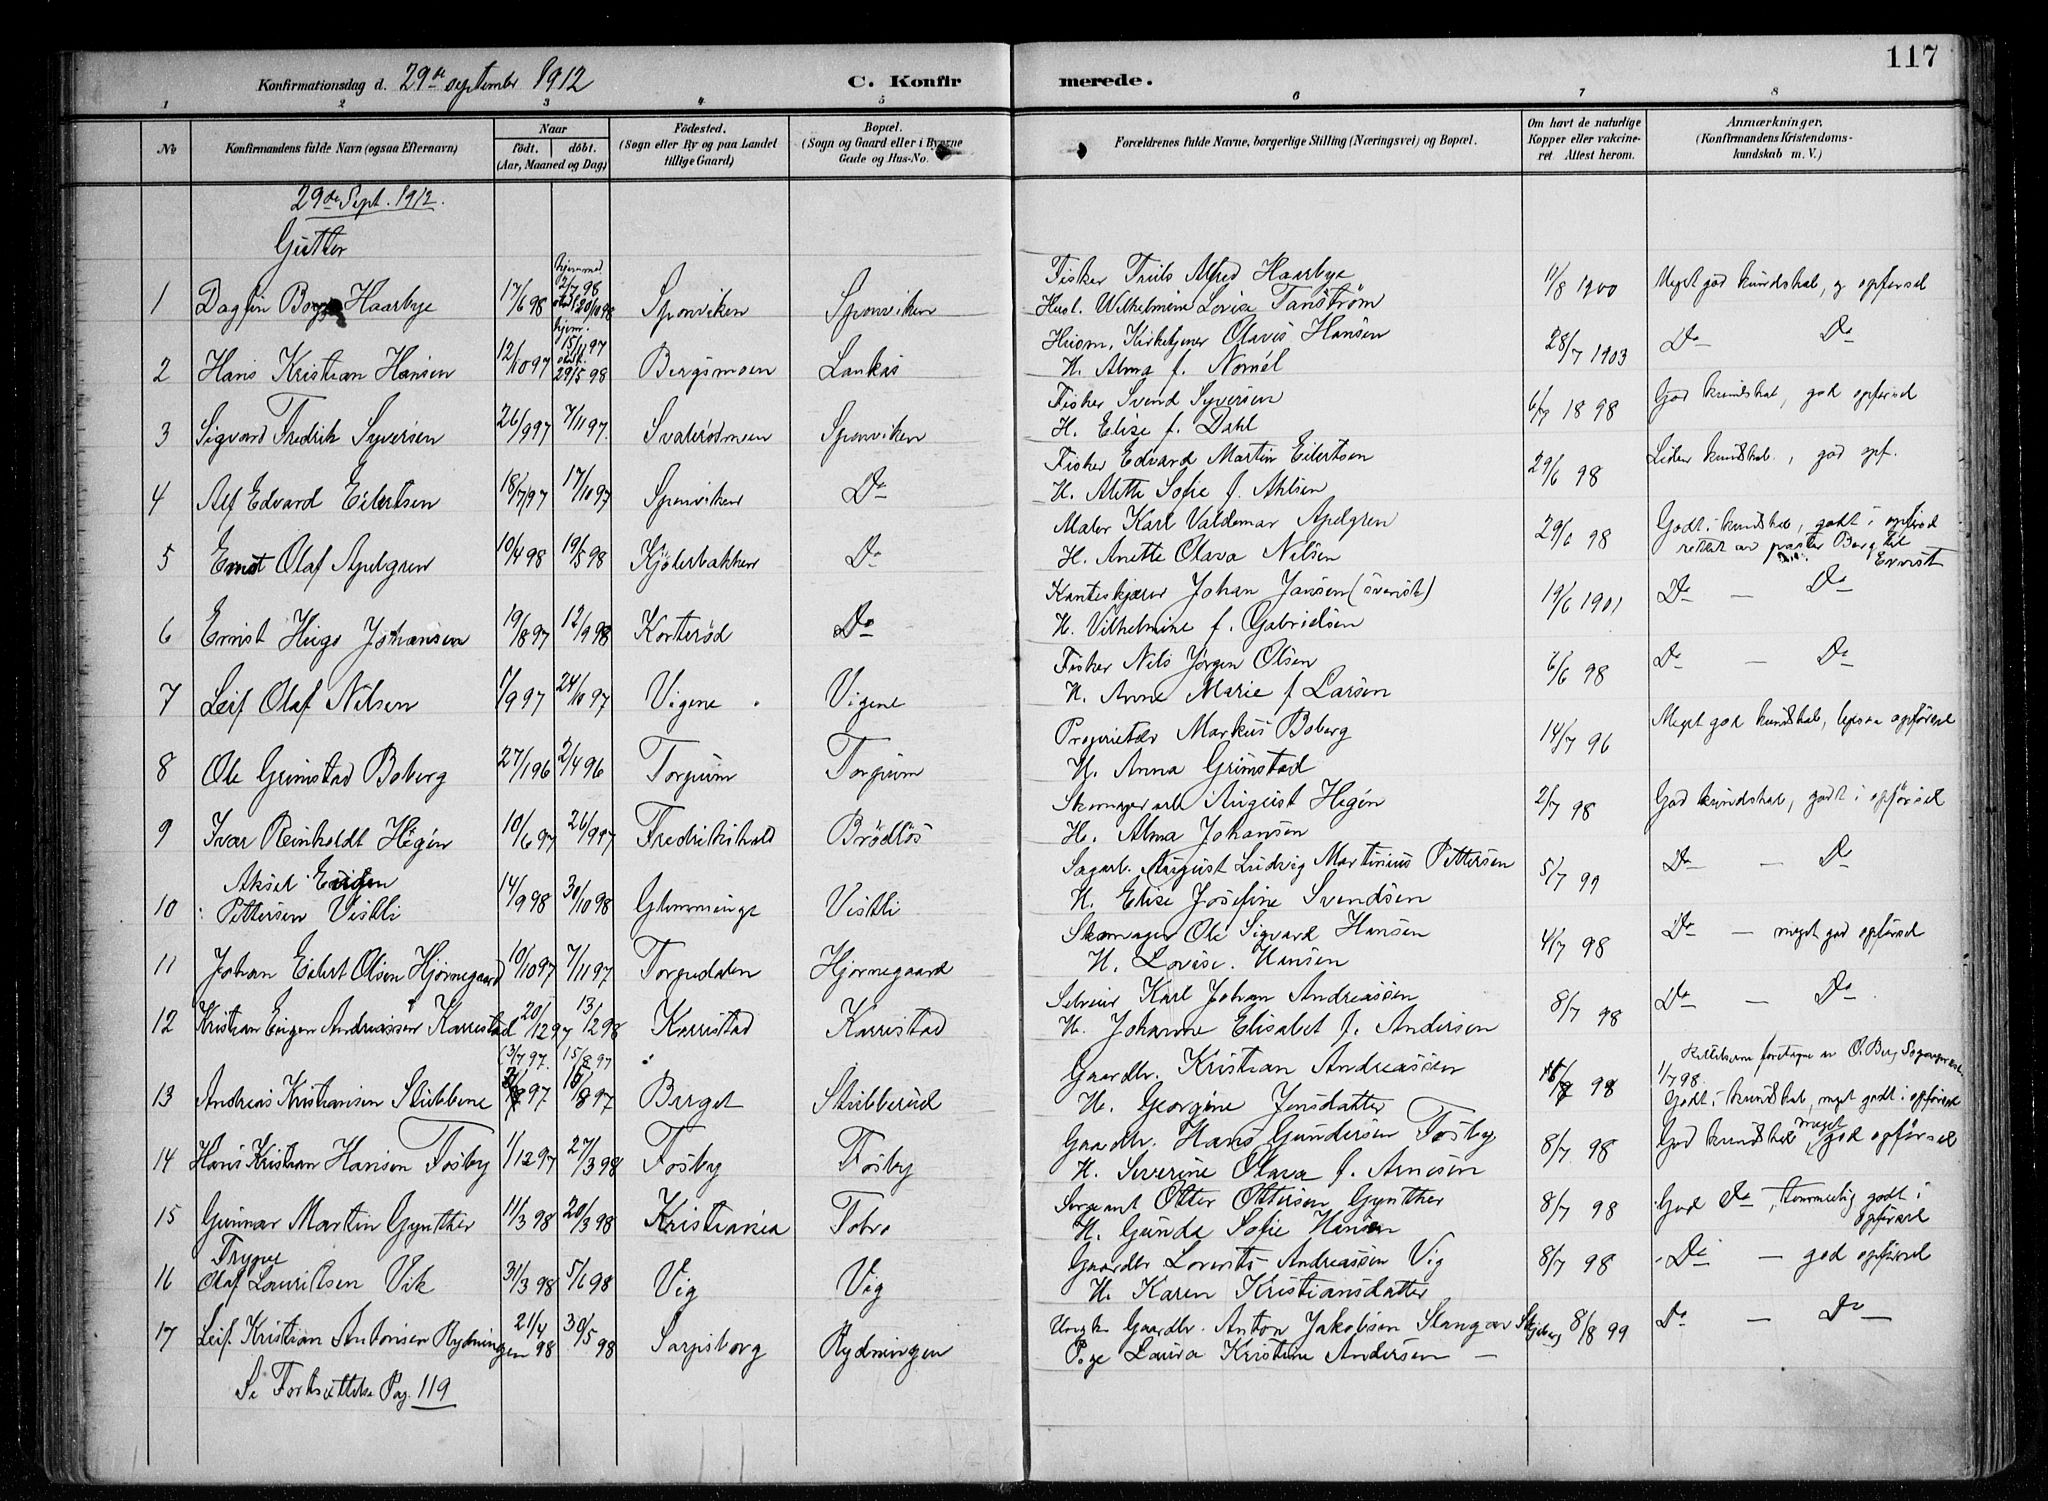 117
Konfirmationsdag d. 29de september 1912 C. Konfirmerede.
1 2 3 4 5 6 7 8
No
Konfirmandens fulde Navn (ogsaa Efternavn)
Naar
födt. döbt.
(Aar, Maaned og Dag)
Födested.
(Sogn eller By og paa Landet
tillige Gaard)
Bopæl.
(Sogn og Gaard eller i Byerne
Gade og Hus-No.
Forældrenes fulde Navne, borgerlige Stilling (Næringsvei) og Bopæl.
Om havt de naturlige
Kopper eller vakcine-
ret. Attest herom.
Anmærkninger.
(Konfirmandens Kristendoms-
kundskab m. V.)
29de Sept. 1912.
Gutter
1 Dagfin Haarbye 17/6 98 hjemmed. 2/7 98 20/10 98 Sponviken Sponviken Fisker Truls Alfred Haarbye 11/8 1900 Meget god kundskab, og opførsel
Hust. Wilhelmine Lovise Tanström
2 Hans Kristian Hansen 12/10 97 hjem. 15/11 97 29/5 98 Bergsmoen Lankas Husm. Kirketjener Olavis Hansen 28/7 1903 Do Do
H. Alma f.
3 Sigvard Fredrik Syversen 26/9 97 7/11 97. Svalerødmoen Sponviken Fisker Svend Syversen 6/7 18 98 God kundskab, god opførsel
H. Elise f. Dahl
4 Alf Edvard Eilertsen 18/7 97 17/10 97 Sponviken Do Fisker Edvard Martin Eilertsen 29/6 98 Liden kundskab, god opf.
H. Alette Sofie f. Ahlsen
5 Ernst Olaf Apelgren 10/4 98 19/5 98 Kjølerbakken Do Maler Karl Valdemar Apelgren 29/6 98 Godt i kundskab, godt i opførsel
H. Anette Olava Nilsen rettet av pastor Berg til Ernst
6 Ernst Hugo Johansen 19/8 97 12/9 98 Korterød Do Johan Jansen (svensk) 19/6 1901 Do — Do
H. Vilhelmine f. Gabrielsen
7 Leif Olaf Nilsen /9 97 24/10 97 Vigene Vigene Fisker Nils Jörgen Olsen 6/6 98 Do — Do
H. Anne Marie f Larsen
8 Ole Grimstad Boberg 27/1 96 2/4 96 Torpum Torpum Proprietær Markus Boberg 14/7 96 Meget god kundskab, ligesaa opførsel
H. Anna Grimstad
9 Ivar Reinholdt Hegén 10/6 97 26/9 97 Fredrikshald Brödlös Skomagerarb August Hegén 2/7 98 God kundskab, godt i opførsel
H. Alma Johansen
10 Aksel Eugen Sagarb. August Ludvig Martinius Pettersen 5/7 99 Do — Do
Pettersen Vistli 14/9 98 30/10 98 Glemminge Vistli H. Elise Josefine Svendsen
11 Johan Eilert Olsen Hjørnegaard 10/10 97 7/11 97 Torpedalen Hjørnegaard Skomager Ole Sigvard Hansen 4/7 98 Do — meget god opførsel
H. Lovise Hansen
12 Kristian Eugen Andreassen Karrestad 20/12 97 13/2 98 Karrestad Karristad Selveier Karl Johan Andreassen 8/7 98 Do — Do
H. Johanne Elisabet f. Andersen
(3/7 97. 15/8 97 Rettelserne foretagne av O. Berg Sogneprest
13 Andreas Kristiansen Stubbene 97 15/8 97 Berget Stubberud Gaardbr. Kristian Andreassen 98 1/7 98.
H. Georgine Jensdatter Godt i kundskab, meget godt i opførsel
14 Hans Kristian Hansen Fosby 1/12 97 27/3 98 Fosby Fosby Gaardbr. Hans Gundersen Fosby 8/7 98 God kundskab meget god opførsel
H. Severine Olava f. Arnesen
15 Gunnar Martin Gynther 11/3 98 20/3 98 Kristiania Tobro Sergeant Otter Ottersen Gynther 8/7 98 God Do, temmelig godt i
H. Gunda Sofie Hansen opførsel
16 Trygve
Olaf Lauritsen Vik 31/3 98 5/6 98 Vig Vig Gaardbr Lorents Andreassen Vig 8/7 98 Do — god opførsel
H. Karen Kristiansdatter
17 Leif Kristian Antonsen Rydningen 21/4 98 30/5 98 Sarpsborg Rydningen Ungk. Gaardbr. Anton Jakobsen Slangar Skjeberg 8/8 99 Do — Do —
Pige Laura Kristine Andersen —
Se Fortsættelse Pag. 119